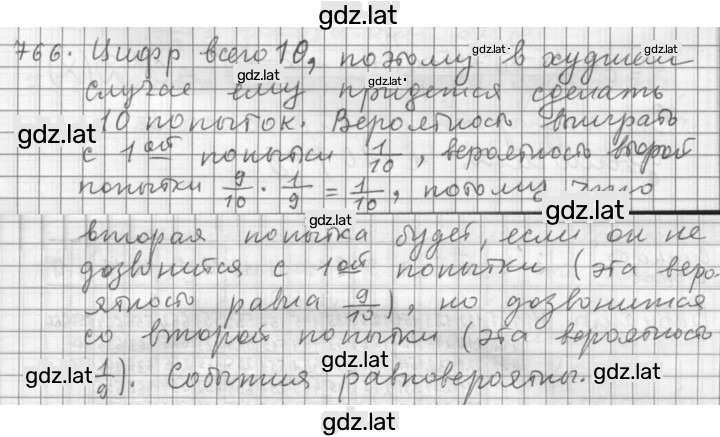 gdz.lat
766. Цифр всего 10, поэтому в худшем
gdz.lat gdz.lat gdz.lat
случае ему придется сделать
gdz.lat
gdz.lat
10 попыток. Вероятность выиграть
с 1ой попытки 1/10, вероятность второй
попытки 9/10 · 1/9 = 1/10, потому
gdz.lat
gdz.lat
вторая попытка будет, если он не
дозвонится с 1ой попытки (эта веро-
ятность равна 9/10), но дозвонится
со второй попытки (эта вероятность
gdz.lat gdz.lat gdz.lat
1/9). События равновероятны.
gdz.lat